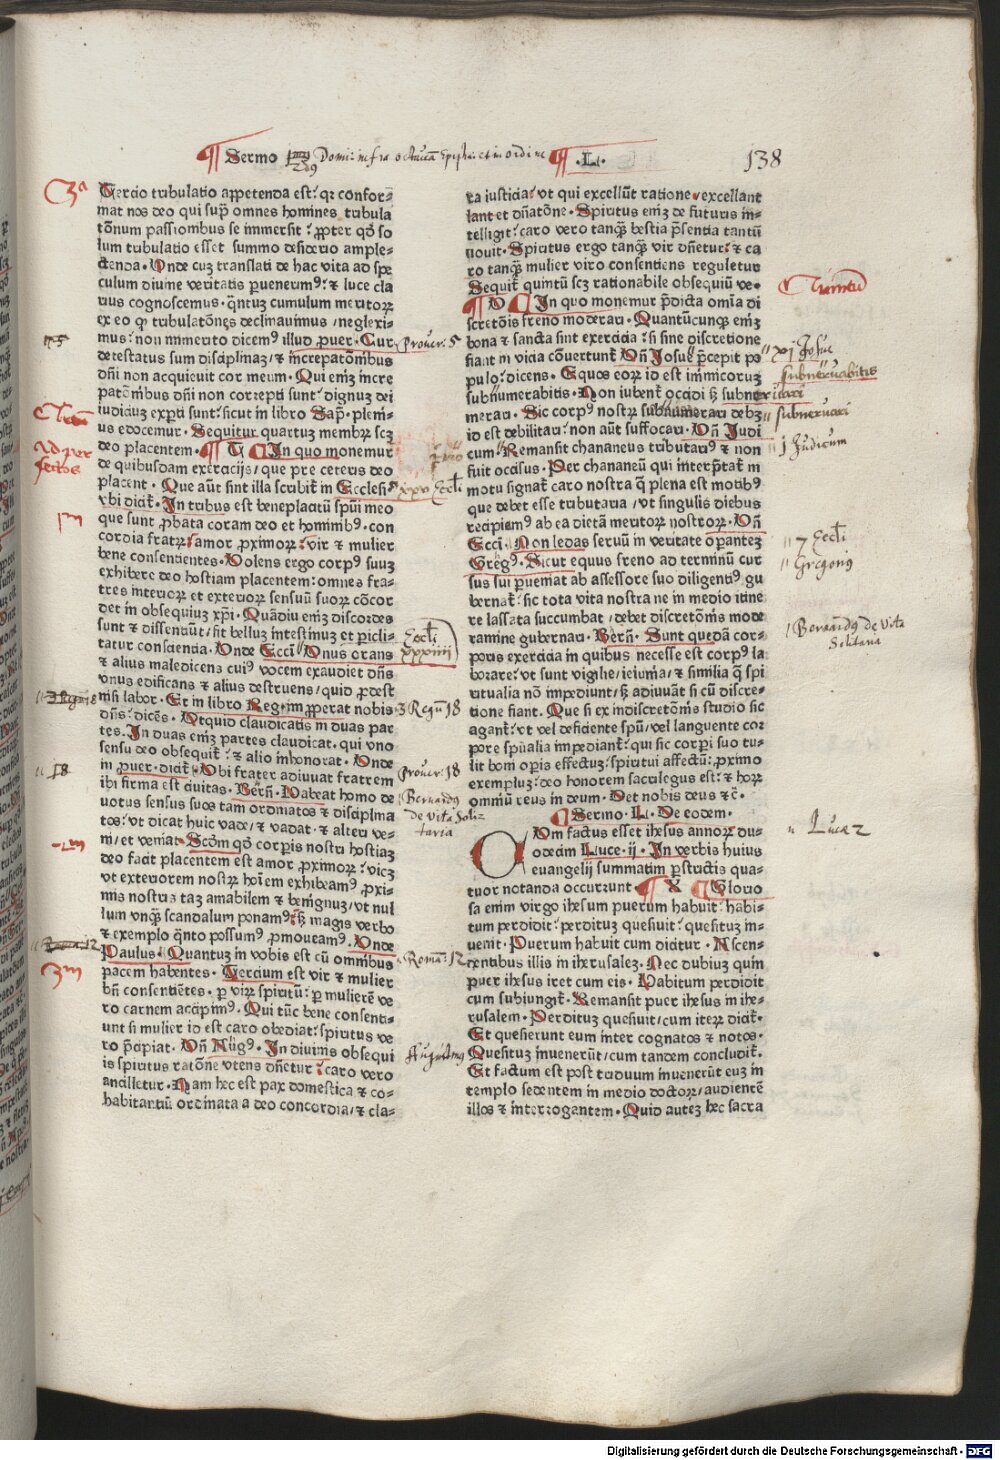 Sermo
Domi: infra octauā Epiphā: et in ordine
.L.
138
Tercio tribulatio appetenda est: qꝛ confor⸗
mat nos deo qui sup̄ omnes homines tribula
tōnum passionibus se immersit: ꝓpter qđ so
lum tribulatio esset summo desiderio ample⸗
ctenda. Unde cuꝫ translati de hac vita ad spe
culum diuine veritatis ꝑuenerimꝰ: ⁊ luce cla
rius cognoscemus. q̄ntuꝫ cumulum meritoꝝ
ex eo qꝫ tribulatōnes declinauimus/neglexi⸗
mus: non immerito dicemꝰ illud ꝓuer. Cur
detestatus sum disciplinaꝫ/⁊ increpatōnibus
dn̄i non acquieuit cor meum. Qui eniꝫ incre
patōnibus dn̄i non correpti sunt: digniꝫ dei
iudiciuꝫ experti sunt: sicut in libro Sap̄. pleni⸗
us edocemur. Sequitur quartuꝫ membꝝ scꝫ
deo placentem. T In quo monemur
de quibusdam exercicijs/que pre ceteris deo
placent. Que aūt sint illa scribit̄ in Ecclesi.
vbi dicit̄. In tribus est beneplacitū spūi meo
que sunt ꝓbata coram deo et hominibꝰ. con
cordia fratꝝ: amor ꝓximoꝝ: vir ⁊ mulier
bene consentientes. Volens ergo corpꝰ suuꝫ
exhibere deo hostiam placentem: omnes fra⸗
tres interioꝝ et exterioꝝ sensuū suoꝝ cōcor
det in obsequiuꝫ xp̄i. Quādiu eniꝫ discordes
sunt ⁊ dissentiūt/fit belluꝫ intestinuꝫ et pericli⸗
tatur conscientia. Unde Eccī. Unus orans
⁊ alius maledicens cuiꝰ vocem exaudiet dn̄s
vnus edificans ⁊ alius destruens/quid ꝓdest
nisi labor. Et in libro Reg. improperat nobis
dn̄s: dicēs. Utquid claudicatis in duas par
tes. In duas eniꝫ partes claudicat. qui vno
sensu deo obsequit̄: ⁊ alio inhonorat. Unde
in ꝓuer. dicit̄. Ubi frater adiuuat fratrem
ibi firma est ciuitas. Bern̄. Habeat homo de
uotus sensus suos tam ordinatos ⁊ disciplina
tos: vt dicat huic vade/⁊ vadat. ⁊ alteri ve⸗
ni/et veniat. Scd̄m qđ corpis nostri hostiaꝫ
deo facit placentem est amor ꝓximoꝝ: vicꝫ
vt exteriorem nostꝝ hoīem exhibeamꝰ ꝓxi⸗
mis nostris taꝫ amabilem ⁊ benignuꝫ/vt nul
lum vnqꝫ scandalum ponamꝰ: sꝫ magis verbo
⁊ exemplo q̄nto possumꝰ, ꝓmoueamꝰ. Unde
Paulus. Quantuꝫ in vobis est cū omnibus
pacem habentes. Tercium est vir ⁊ mulier
bn̄ consentiētes. ꝑ viꝝ spiritū: ꝑ mulierē ve
ro carnem accipimꝰ. Qui tūc bene consenti⸗
unt si mulier id est caro obediat: spiritus ve
ro p̄cipiat. Un̄ Augꝰ. In diuinis obsequi
is spiritus ratōne vtens dn̄etur: caro vero
ancilletur. Nam hec est pax domestica ⁊ co⸗
habitantiū ordinata a deo concordia/⁊ cla⸗
ra iusticia: vt qui excellūt ratione, excellant
lant et dn̄atōne. Spiritus eniꝫ de futuris in⸗
telligit: caro vero tanqꝫ bestia p̄sentia tantū
nouit. Spiritus ergo tanqꝫ vir dn̄etur: ⁊ ca
ro tanqꝫ mulier viro consentiens reguletur
Sequit̄ quintū scꝫ rationabile obsequiū ve⸗
In quo monemur p̄dicta om̄ia di
scretōis freno moderari. Quantūcunqꝫ eniꝫ
bona ⁊ sancta sint exercicia: si sine discretione
fiant in vicia cōuertunt̄. Un̄ Josue p̄cepit po
pulo: dicens. Equos eoꝝ id est inimicoꝝ
subnumerabitis. Non iubent̄ occidi sꝫ subner
merari. Sic corpꝰ nostꝝ subnumerari debꝫ
id est debilitari: non aūt suffocari. Un̄ Judi
cum. Remansit chananeus tributariꝰ ⁊ non
fuit occisus. Per chananeū qui interp̄tat̄ in
motu signat̄ caro nostra q̄ plena est motibꝰ
que debet esse tributaria/vt singulis diebus
recipiamꝰ ab ea dietā meritoꝝ nostroꝝ. Un̄
Eccī. Non ledas seruū in veritate operantez
Gregꝰ. Sicut equus freno ad terminū cur
sus sui ꝑueniat ab assessore suo diligentiꝰ gu
bernat̄: sic tota vita nostra ne in medio itine
re lassata succumbat/debet discretōnis mode
ramine gubernari. Bern̄. Sunt quedā cor⸗
poris exercicia in quibus necesse est corpꝰ la
borare: vt sunt vigilie/ieiunia/⁊ similia q̄ spi
ritualia nō impediunt/sꝫ adiuuāt si cū discre⸗
tione fiant. Que si ex indiscretōnis studio sic
agant̄: vt vel deficiente spū/vel languente cor
pore spūalia impediant̄: qui sic corpi suo tu⸗
lit boni opis effectuꝫ: spiritui affectū: ꝓximo
exempluꝫ: deo honorem sacrilegus est: ⁊ hoꝝ
omniū reus in deum. Det nobis deus ⁊č.
Sermo .L. De eodem.
Cum factus esset ihesus annoꝝ duo⸗
odecim Luce. ij. In verbis huius
euangelij summatim perstrictis qua⸗
tuor notanda occurrunt. X Glorio
sa enim virgo ihesum puerum habuit: habi⸗
tum perdidit: perdituꝫ quesiuit: quesituꝫ in⸗
uenit. Puerum habuit cum dicitur. Ascen⸗
dentibus illis in iherusalez. Nec dubiuꝫ quin
puer ihesus iret cum eis. Habitum perdidit
cum subiungit̄. Remansit puer ihesus in ihe⸗
rusalem. Perdituꝫ quesiuit/cum iteꝝ dicit̄.
Et quesierunt eum inter cognatos ⁊ notos.
Quesituꝫ inuenerūt/cum tandem concludit̄.
Et factum est post triduum inuenerūt euꝫ in
templo sedentem in medio doctoꝝ/audientē
illos ⁊ interrogantem. Quid auteꝫ hec sacra
3ᵃ
Ad per
fectos
3m
Prouer. 5
xxv Eccli
Eccli
xxxiiii
3 Regū 18
Prouer. 18
Bernardꝰ
de vita Soli⸗
taria
Roma: 12
Augustinꝰ
xj Josue
subneruabitis
subneruari
j Judicum
7 Eccli
Gregoriꝰ
Bernardꝰ de vita
Solitaria
Luca 2
Digitalisierung gefördert durch die Deutsche Forschungsgemeinschaft - DFG